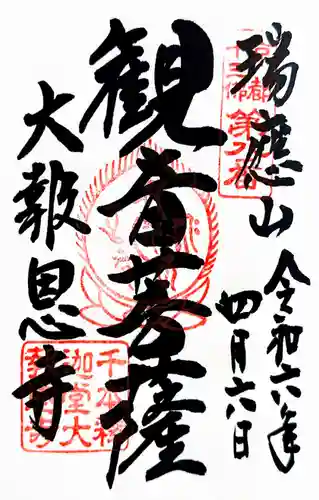 瑞應山
令和六年
四月六日
観音菩薩
大報恩寺
京都
十三佛
第八番
千本釋
迦堂大
報恩寺